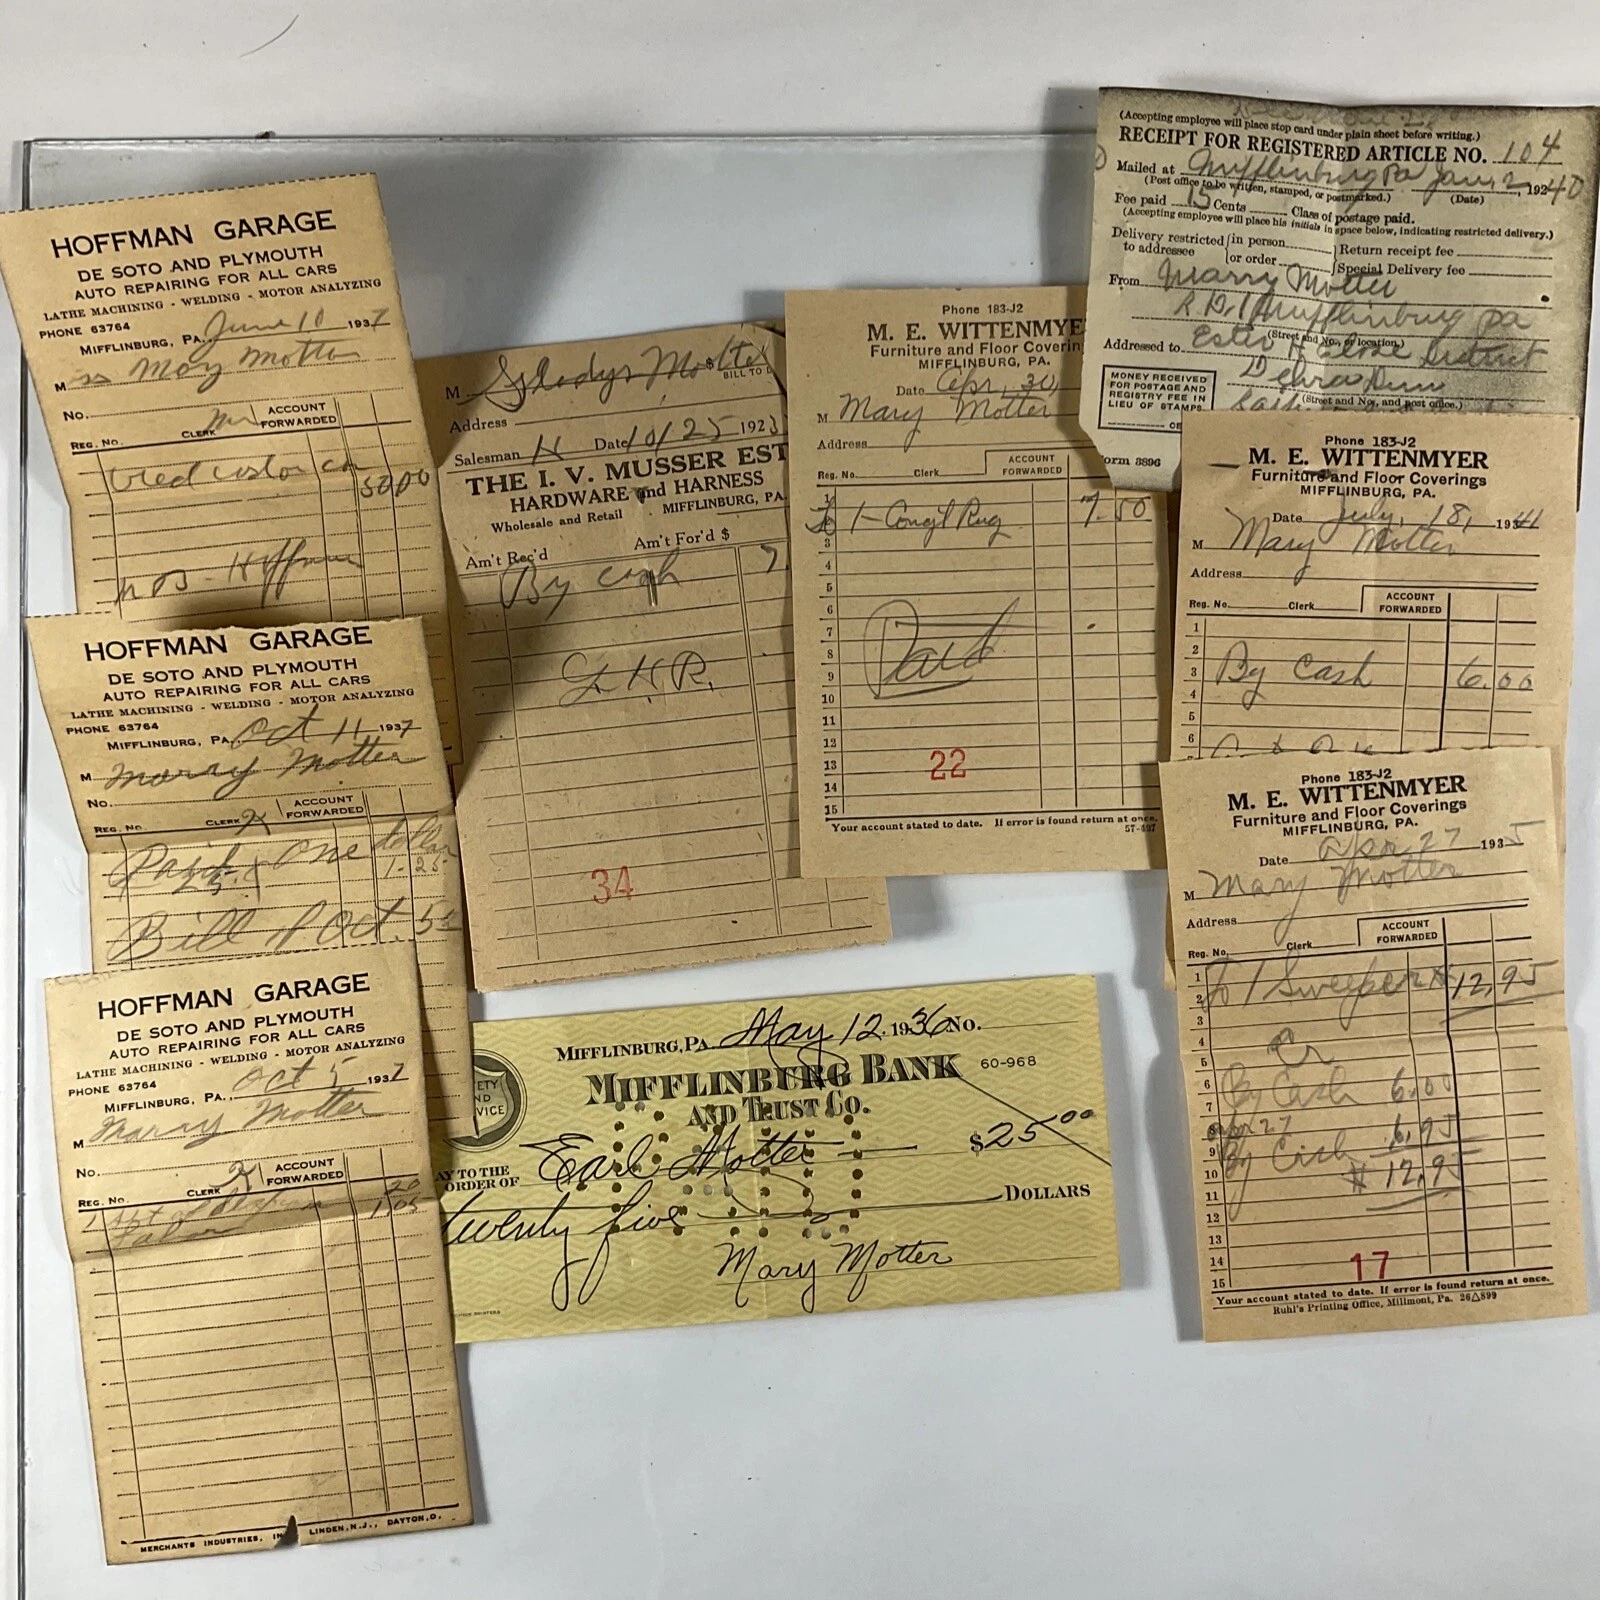 HOFFMAN GARAGE
DE SOTO AND PLYMOUTH
AUTO REPAIRING FOR ALL CARS
LATHE MACHINING - WELDING - MOTOR ANALYZING
PHONE 63764
MIFFLINBURG, PA. June 10 1937
Mss May Motter
No.
REG. NO. CLERK ACCOUNT FORWARDED
on car
50 00
Hoffman
HOFFMAN GARAGE
DE SOTO AND PLYMOUTH
AUTO REPAIRING FOR ALL CARS
LATHE MACHINING - WELDING - MOTOR ANALYZING
PHONE 63764
MIFFLINBURG, PA. Oct 11 1937
M Marray Motter
No.
REG. NO. CLERK ACCOUNT FORWARDED
Paid One dollar
25 1-25
Bill of Oct. 5
HOFFMAN GARAGE
DE SOTO AND PLYMOUTH
AUTO REPAIRING FOR ALL CARS
LATHE MACHINING - WELDING - MOTOR ANALYZING
PHONE 63764
MIFFLINBURG, PA., Oct 5 1937
M Marray Motter
No.
REG. NO. CLERK ACCOUNT FORWARDED
20
Labor 1.05
MERCHANTS INDUSTRIES, IN LINDEN, N.J., DAYTON, O.
M Gladys Motter
BILL TO
Address
Salesman H Date 10/25 192
THE I. V. MUSSER EST
HARDWARE and HARNESS
Wholesale and Retail MIFFLINBURG, PA.
Am't Rec'd Am't For'd $
By cash 7.
34
Phone 183-J2
M. E. WITTENMYE
Furniture and Floor Coverin
MIFFLINBURG, PA.
Date Apr. 30,
M Mary Motter
Address
Reg. No. Clerk ACCOUNT FORWARDED
1
To 1- Congl Rug 7.50
3
4
5
6
7
8 Paid
9
10
11
12
13 22
14
15
Your account stated to date. If error is found return at once.
57-497
(Accepting employee will place stop card under plain sheet before writing.)
RECEIPT FOR REGISTERED ARTICLE NO. 104
Mailed at Mifflinburg Pa Jan. 2, 1940
(Post office to be written, stamped, or postmarked.) (Date)
Fee paid 15 Cents Class of postage paid.
(Accepting employee will place his initials in space below, indicating restricted delivery.)
Delivery restricted to addressee in person or order Return receipt fee
Special Delivery fee
From Marry Motter
R.D.1 Mifflinburg Pa
(Street and No., or location.)
Addressed to Ester District
(Street and No., and post office.)
MONEY RECEIVED FOR POSTAGE AND REGISTRY FEE IN LIEU OF STAMPS.
orm 3896
Phone 183-J2
M. E. WITTENMYER
Furniture and Floor Coverings
MIFFLINBURG, PA.
Date July, 18, 1941
M Mary Motter
Address
Reg. No. Clerk ACCOUNT FORWARDED
1
2
3 By Cash 6.00
4
5
6
Phone 183-J2
M. E. WITTENMYER
Furniture and Floor Coverings
MIFFLINBURG, PA.
Date Apr 27 1935
M Mary Motter
Address
Reg. No. Clerk ACCOUNT FORWARDED
1
2 To 1 Sweeper 12,95
3
4
5 Cr
6 By Cash 6.00
7
Apr 27
9 By Cash 6.95
10 $ 12,95
11
12
13
14 17
15
Your account stated to date. If error is found return at once.
Ruhl's Printing Office, Millmont, Pa. 26△899
MIFFLINBURG, PA. May 12 1936 No.
MIFFLINBURG BANK 60-968
AND TRUST CO.
ETY
ND
VICE
AY TO THE ORDER OF Earl Motter $25.00
twenty five DOLLARS
Mary Motter